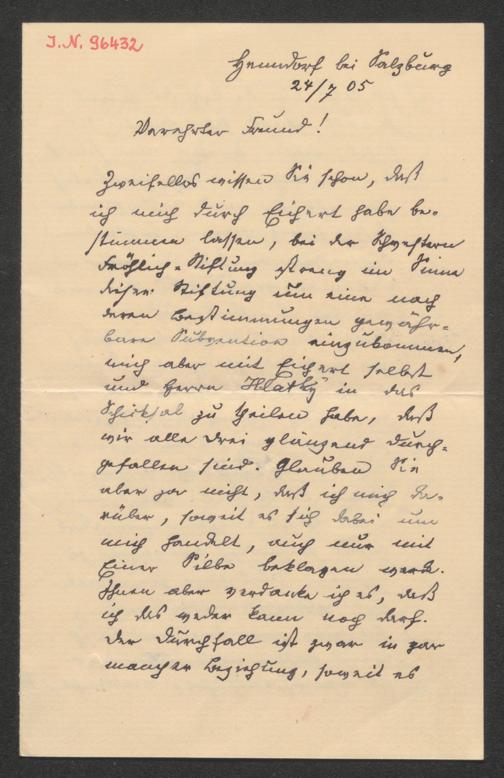 I.N. 96432
Henndorf bei Salzburg
24/7 05
Verehrter Freund!
Zweifellos wissen Sie schon, daß
ich mich durch Eichert habe be-
stimmen lassen, bei der Schwestern
Fröhlich-Stiftung streng im Sinne
dieser Stiftung um eine nach
deren Bestimmungen gewähr-
bare Subvention einzukommen,
mich aber mit Eichert selbst
und Herrn Hlatky in das
Schicksal zu theilen habe, daß
wir alle drei glänzend durch-
gefallen sind. Glauben Sie
aber ja nicht, daß ich mich da-
rüber, soweit es sich dabei um
mich handelt, auch nur mit
einer Silbe beklagen werde.
Ihnen aber verdanke ich es, daß
ich das weder kann noch darf.
Der Durchfall ist zwar in gar
mancher Beziehung, soweit es